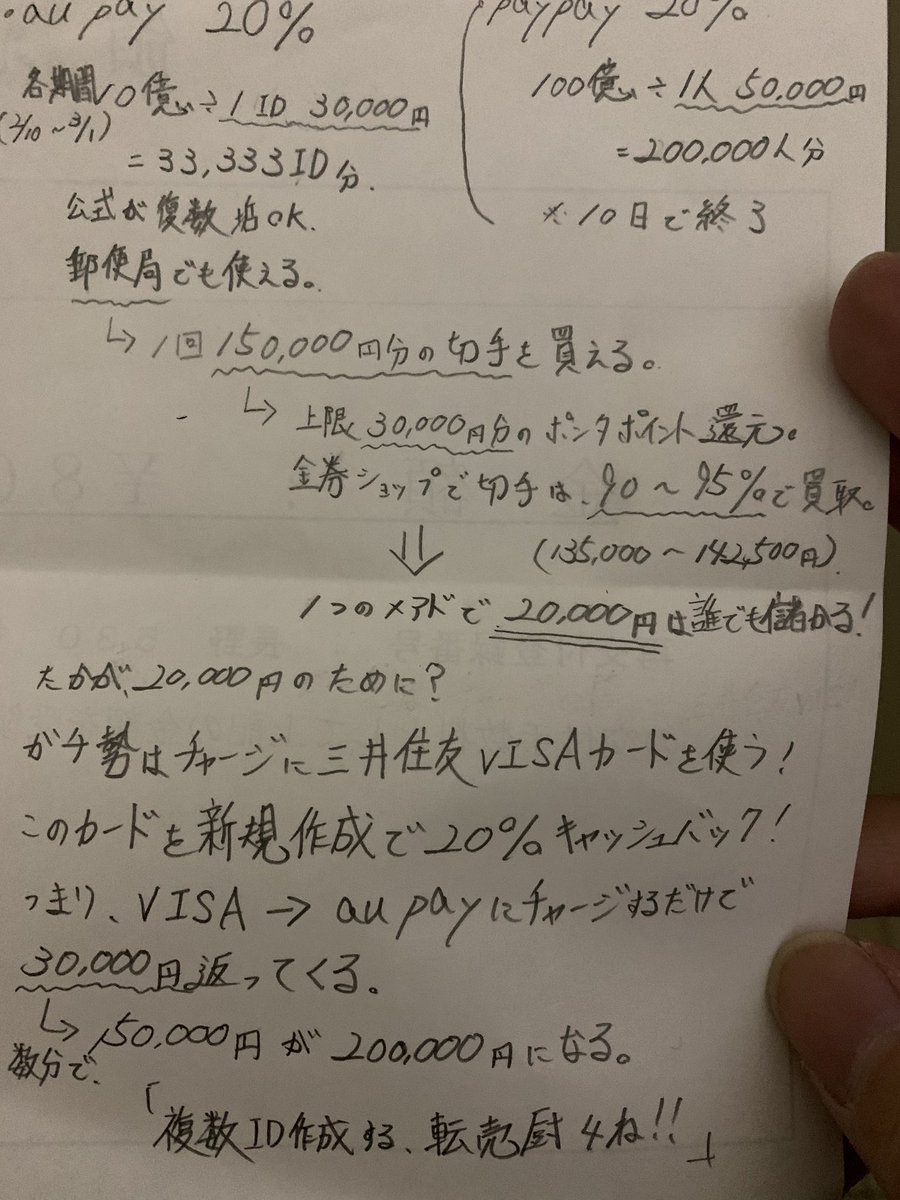 ・au pay 20%
各期間 10億 ÷ 1 ID 30,000円
(2/10~3/1)
= 33,333 ID分.
公式が複数垢OK.
郵便局でも使える。
↳ 1回 150,000円分の切手を買える。
↳ 上限 30,000円分のポンタポイント還元。
金券ショップで切手は、90~95%で買取。
(135,000~142,500円)
⇓
1つのメアドで 20,000円は誰でも儲かる!
paypay 20%
100億 ÷ 1人 50,000円
= 200,000人分
※10日で終了
たかが、20,000円のために?
ガチ勢はチャージに三井住友VISAカードを使う!
このカードを新規作成で20%キャッシュバック!
つまり、VISA → au payにチャージするだけで
30,000円返ってくる。
↳ 150,000円が200,000円になる。
数分で、
「複数ID作成する、転売厨4ね!!」